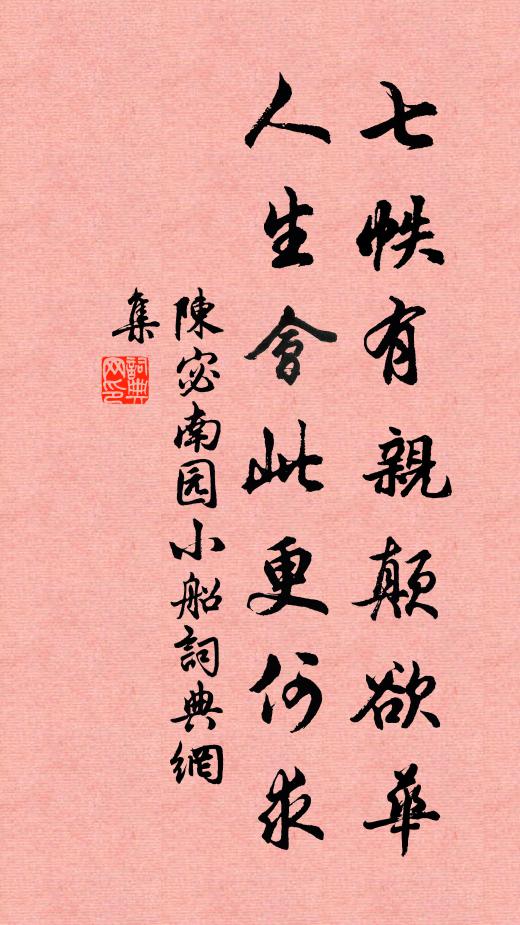 七帙有親顛欲華
人生會此更何求
陳宓南园小船詞典網
集
詞典网印